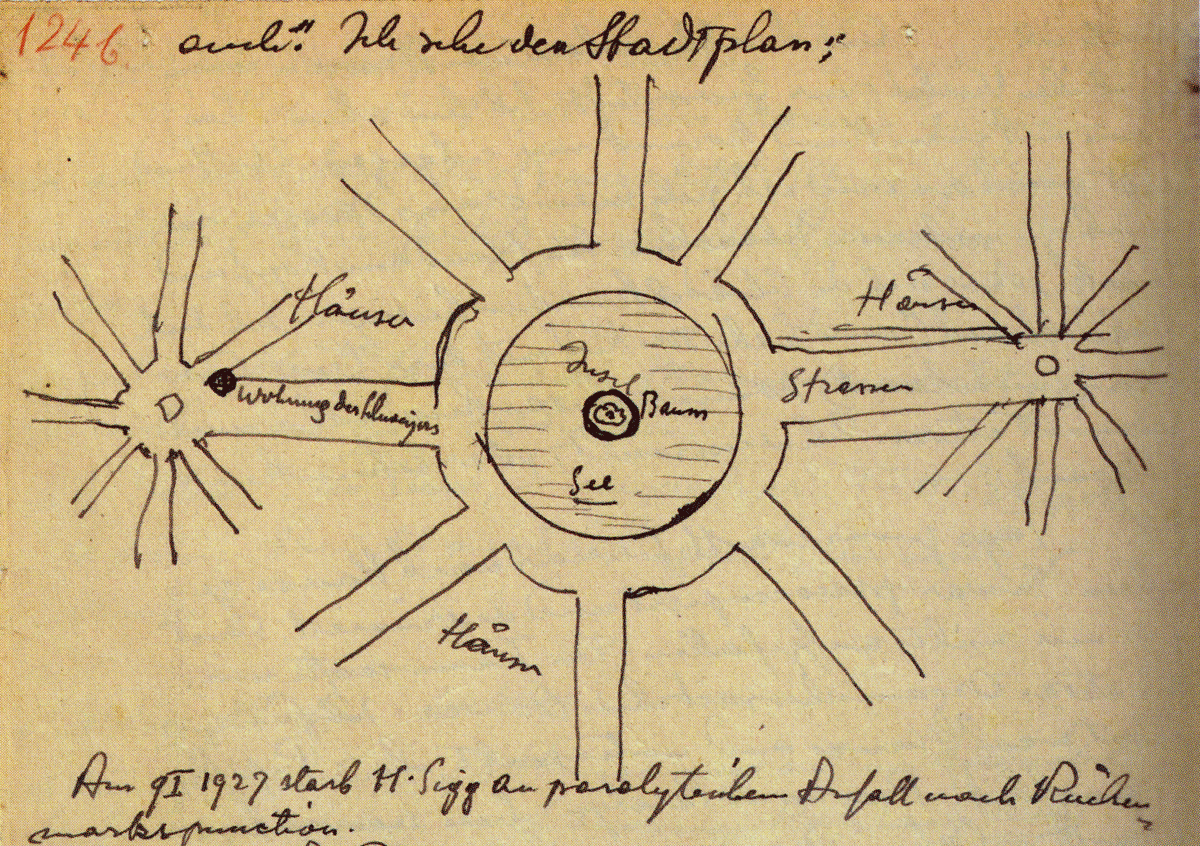 1246
auch." Ich sehe den Stadtplan:
Häuser
Häuser
Wohnung des Schweizers
Insel
Baum
Strassen
See
Häuser
Am 9 I 1927 starb H. Sigg an paralytischem Anfall nach Rücken
markspunction.